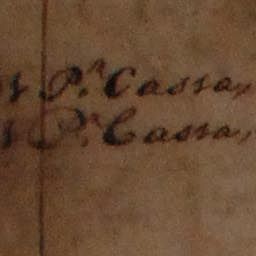 Pr. Cassa,,
Pr. Cassa,